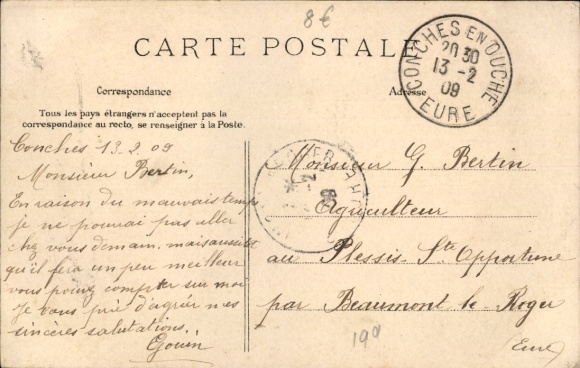 8€
CARTE POSTALE
CONCHES EN OUCHE
20 30
13 -2
09
EURE
Correspondance
Adresse
Tous les pays étrangers n'acceptent pas la
correspondance au recto, se renseigner à la Poste.
Conches 13-2 09
Monsieur Bertin,
En raison du mauvais temps
je ne pourai pas aller
chez vous demain, mais aussitot
qu'il fera un peu meilleur
vous pouvez compter sur moi
Je vous prie d'agréer mes
sincères salutations.
Gouin
Monsieur G. Bertin
Agriculteur
au Plessis Ste Opportune
par Beaumont-le-Roger
Eure
199